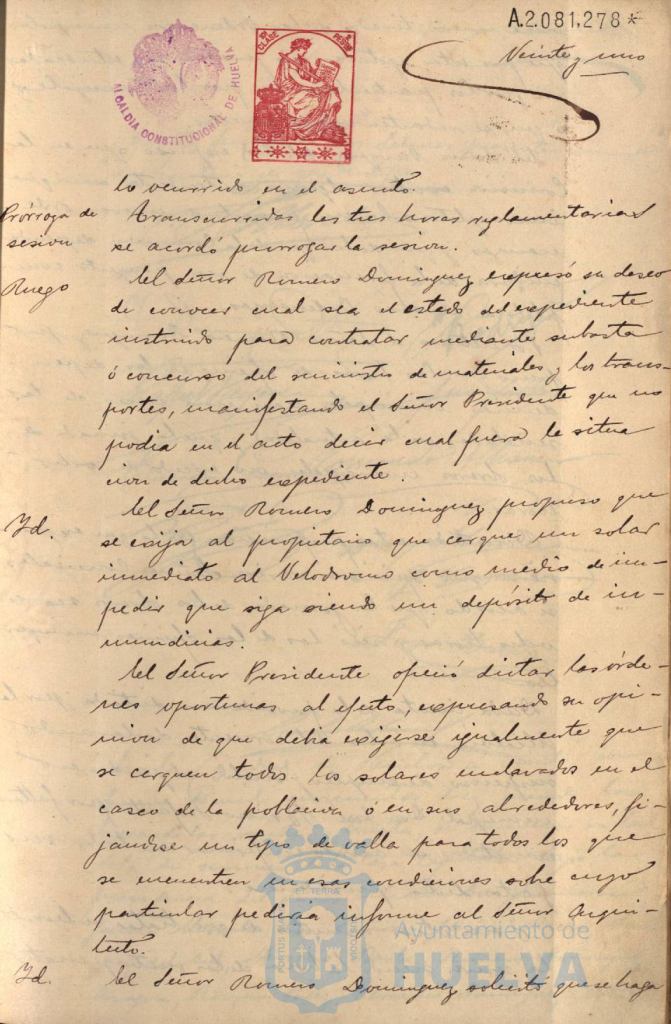 A.2.081,278*
Veinte y uno
ALCALDIA CONSTITUCIONAL DE HUELVA
lo ocurrido en el asunto.
Prórroga de sesion
Transcurridas las tres horas reglamentarias
se acordó prorrogar la sesion.
Ruego
El Señor Romero Dominguez expresó su deseo
de conocer cual sea el estado del expediente
instruido para contratar mediante subasta
ó concurso del suministro de materiales y los trans-
portes, manifestando el Señor Presidente que no
podia en el acto decir cual fuera la situa
cion de dicho expediente.
Yd.
El Señor Romero Dominguez propuso que
se exija al propietario que cerque un solar
inmediato al Velodromo como medio de im-
pedir que siga siendo un depósito de in-
mundicias.
El Señor Presidente ofreció dictar las órde-
nes oportunas al efecto, expresando su opi-
nion de que debia exigirse igualmente que
se cerquen todos los solares enclavados en el
casco de la poblacion ó en sus alrededores, fi-
jándose un tipo de valla para todos los que
se encuentren en esas condiciones sobre cuyo
particular pediria informe al Señor Arqui-
tecto.
Yd.
El Señor Romero Dominguez solicitó que se haga
Ayuntamiento de
HUELVA